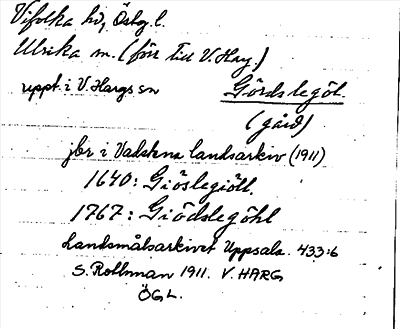 Vifolka hd, Östg. l.
Ulrika m. (förr till V. Harg.)
uppt. i V. Hargs sn Gördslegöl.
(gård)
jbr i Vadstena landsarkiv (1911)
1640: Giöslegiöll.
1767: Giödslegöhl
Landsmålsarkivet Uppsala. 433:6
S. Rollnman 1911. V. HARG
ÖGL.